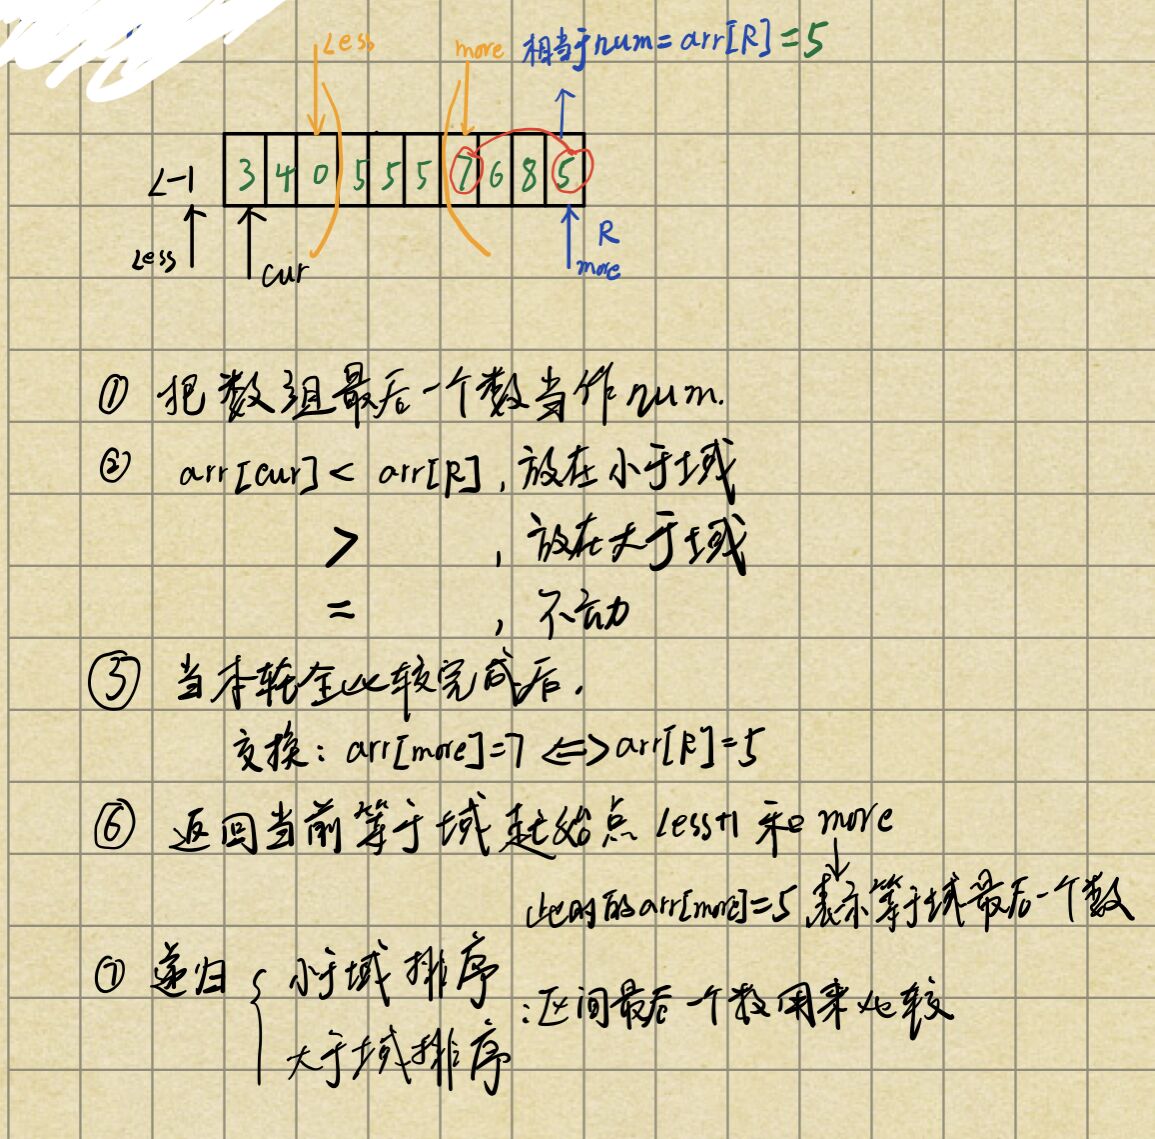 Less more 相当于num=arr[R]=5
L-1 3 4 0 5 5 5 7 6 8 5
Less cur R
more
① 把数组最后一个数当作num.
② arr[cur]< arr[R],放在小于域
> ,放在大于域
= ,不动
③ 当本轮全比较完成后.
交换:arr[more]=7 <=> arr[R]=5
⑥ 返回当前等于域起始点 Less+1 和 more
此时的arr[more]=5 表示等于域最后一个数
⑦ 递归{ 小于域排序
:区间最后一个数用来比较
大于域排序